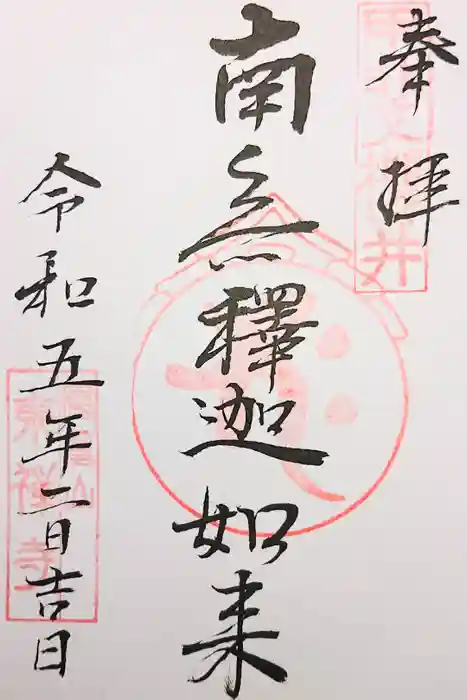 奉拝
南無釋迦如来
令和五年二月吉日